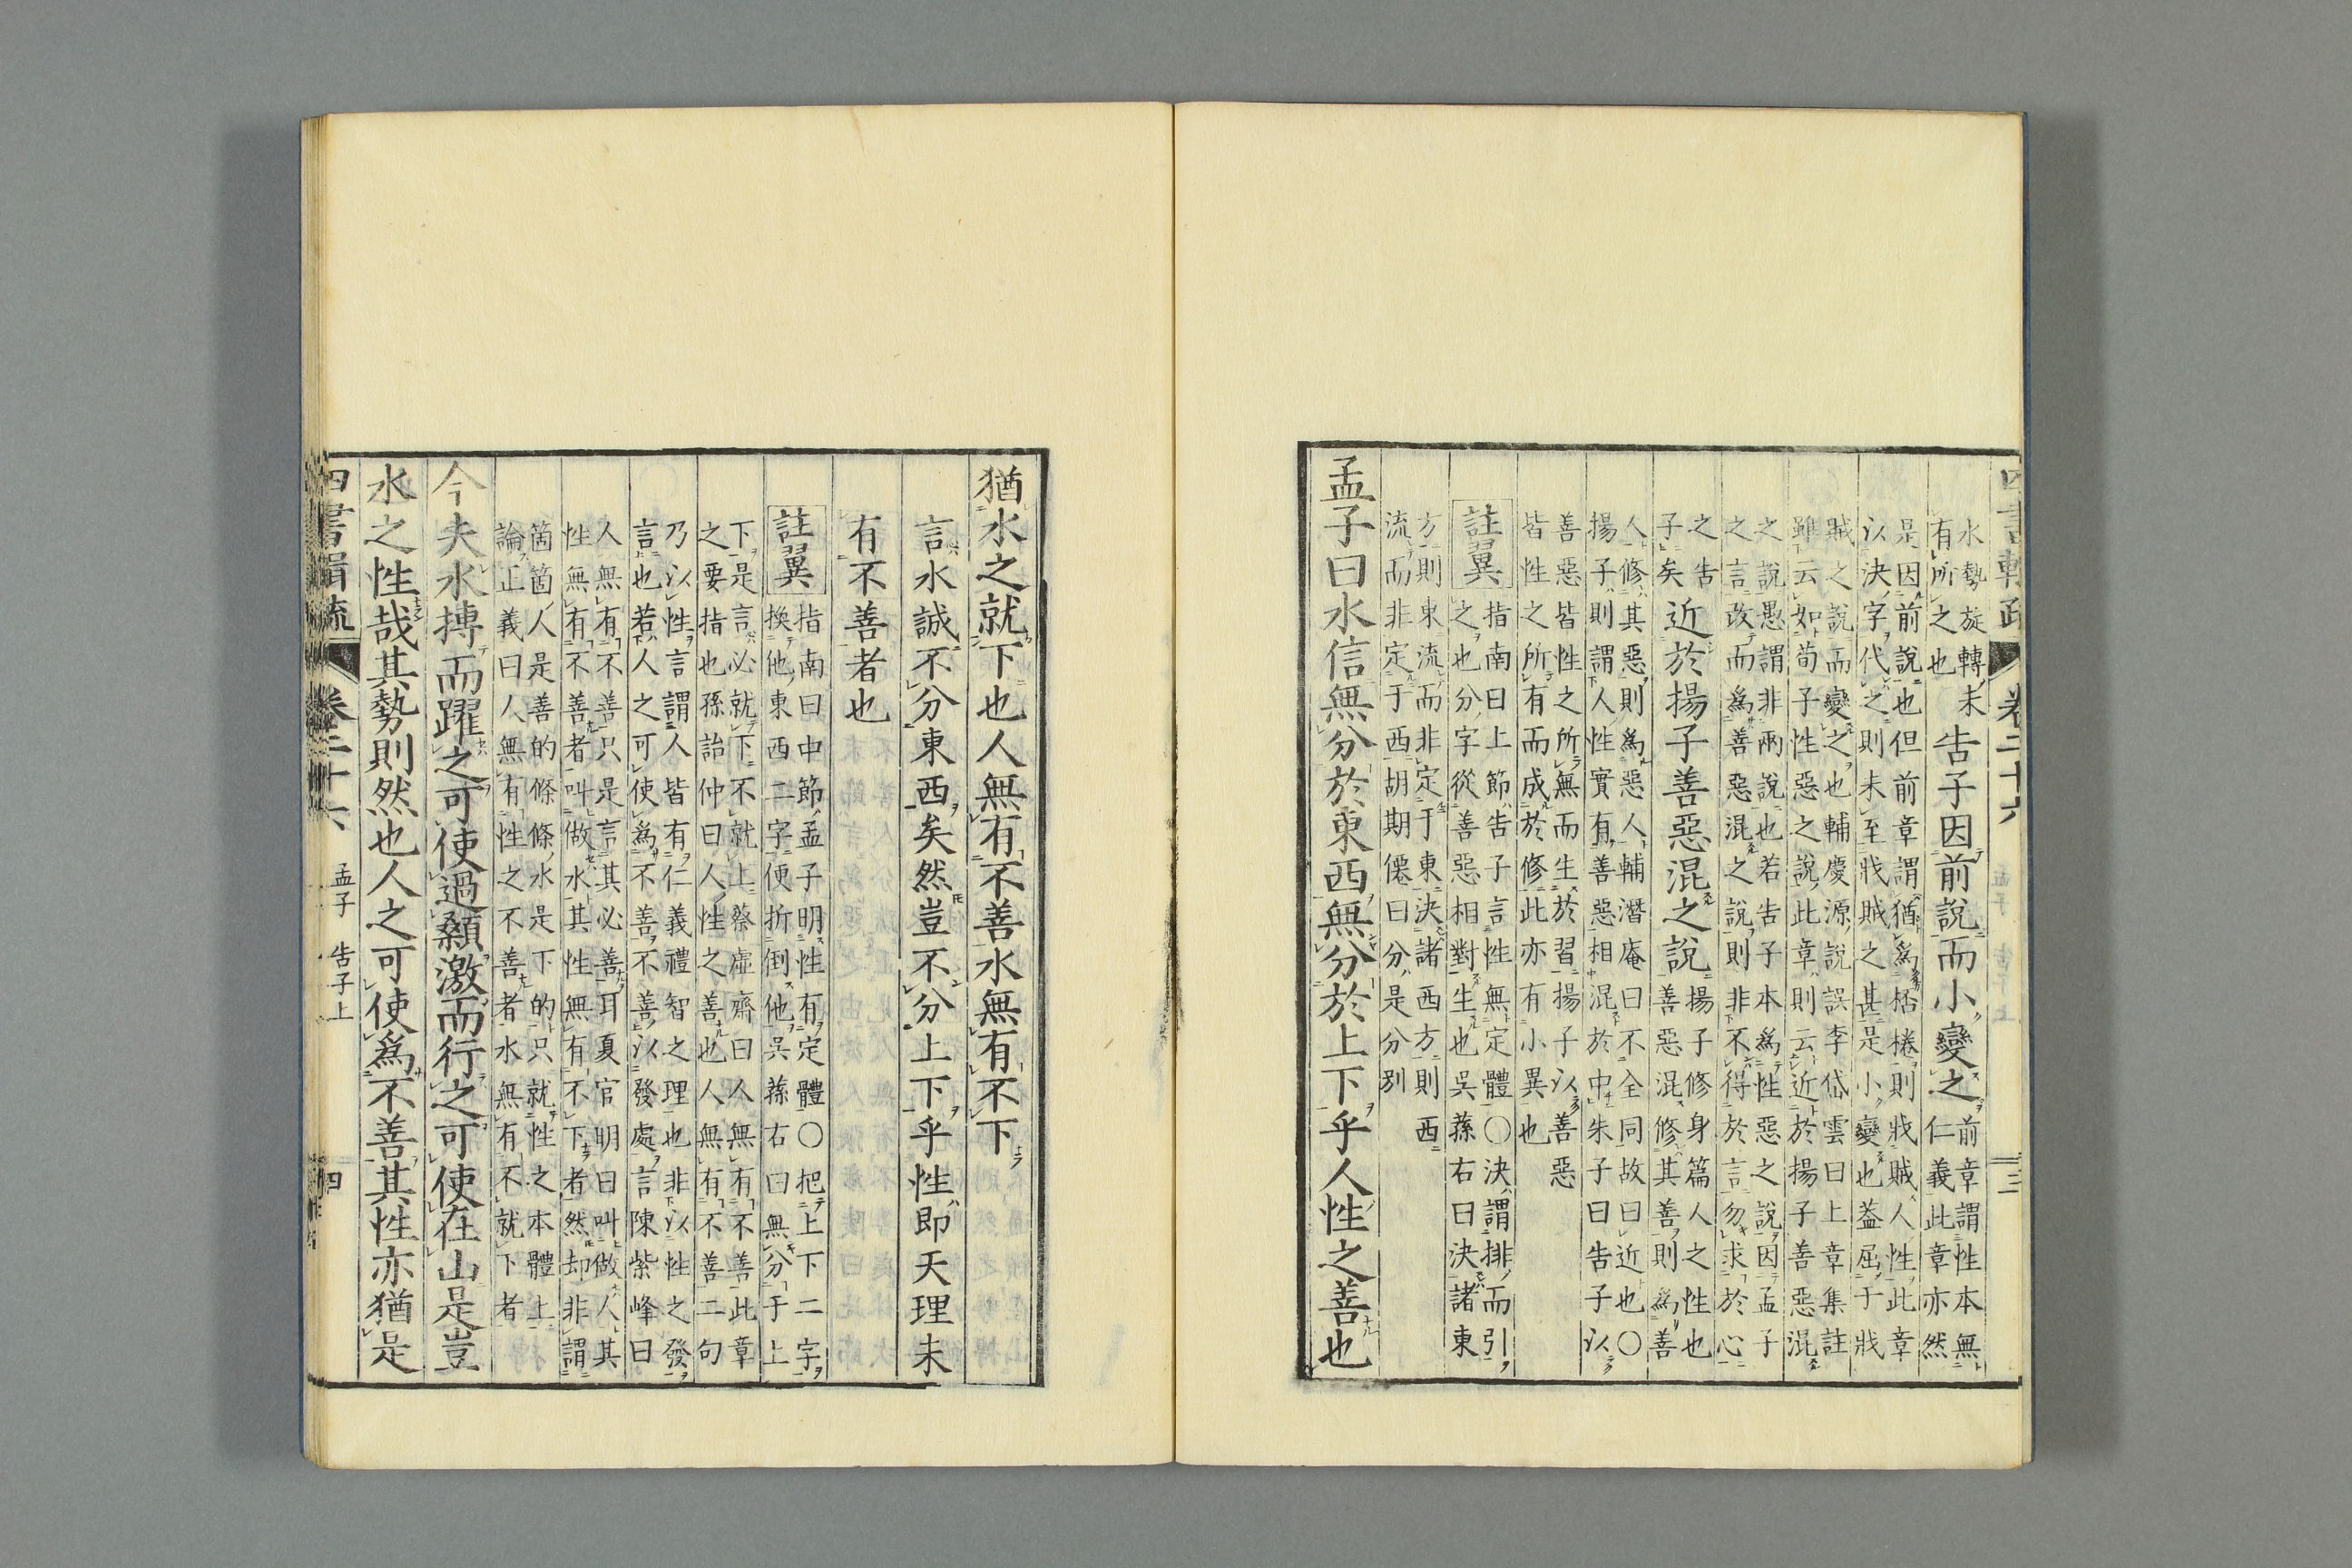 四書輯疏 卷二十六 三
水勢旋轉未
有所之也
告子因前說而小變之
前章謂性本無
仁義此章亦然
是因前說也但前章謂猶爲桮棬則戕賊人性此章
以決字代之則未至戕賊之甚是小變也蓋屈于戕
賊之說而變之也輔慶源說誤李岱雲曰上章集註
雖云如荀子性惡之說此章則云近於揚子善惡混
之說愚謂非兩說也若告子本爲性惡之說因孟子
之言改而爲善惡混之說則非不得於言勿求於心
之告
子矣
近於揚子善惡混之說
揚子修身篇人之性也
善惡混修其善則爲善
人修其惡則爲惡人輔潛庵曰不全同故曰近也〇
揚子則謂人性實有善惡相混於中朱子曰告子以
善惡皆性之所無而生於習揚子以善惡
皆性之所有而成於修此亦有小異也
註翼
指南曰上節告子言性無定體〇決謂排而引
之也分字從善惡相對生也吳蓀右曰決諸東
方則東流而非定于東決諸西方則西
流而非定于西胡期僊曰分是分別
孟子曰水信無分於東西無分於上下乎人性之善也
猶水之就下也人無有不善水無有不下
言水誠不分東西矣然豈不分上下乎性即天理未
有不善者也
註翼
指南曰中節孟子明性有定體〇把上下二字
換他東西二字便折倒他吳蓀右曰無分于上
下是言必就下不就上蔡虛齋曰人無有不善此章
之要指也孫詒仲曰人性之善也人無有不善二句
乃以性言謂人皆有仁義禮智之理也非以性之發
言也若人之可使爲不善不善以發處言陳紫峰曰
人無有不善只是言其必善耳夏官明曰叫做人其
性無有不善者叫做水其性無有不下者然却非謂
箇箇人是善的條條水是下的只就性之本體上
論正義曰人無有性之不善者水無有不就下者
今夫水搏而躍之可使過顙激而行之可使在山是豈
水之性哉其勢則然也人之可使爲不善其性亦猶是
四書輯疏 卷二十六 孟子 告子上 四